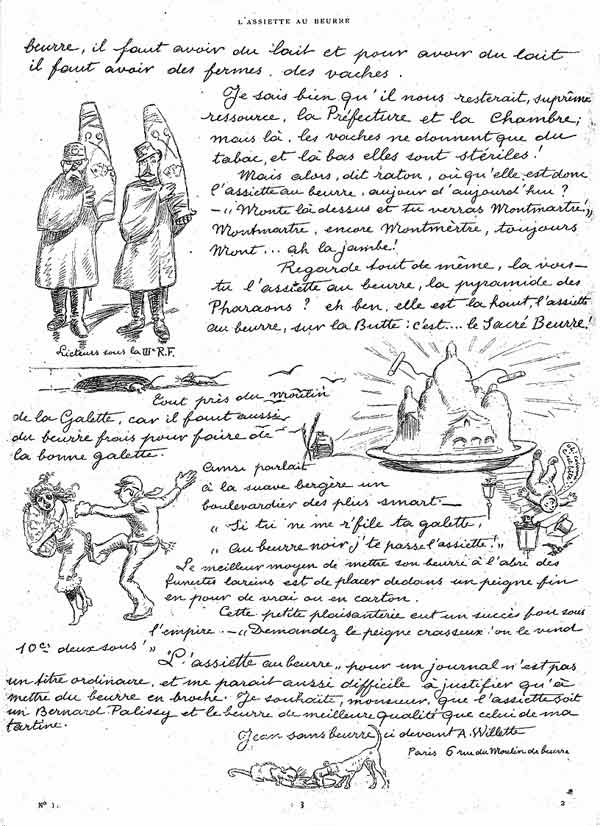 L'ASSIETTE AU BEURRE
beurre, il faut avoir du lait et pour avoir du lait
il faut avoir des fermes. des vaches.
Je sais bien qu'il nous resterait, suprême
ressource, la Préfecture et la Chambre;
mais là, les vaches ne donnent que du
tabac, et là bas elles sont stériles!
Mais alors, dit raton, où qu'elle est donc
l'assiette au beurre, aujour d'aujourd'hui?
—"Monte là dessus et tu verras Montmartre!"
Montmartre, encore Montmertre, toujours
Mont... ah la jambe!
Regarde tout de même, la vois-
tu l'assiette au beurre, la pyramide des
Pharaons? eh ben, elle est là haut, l'assiette
au beurre, sur la Butte: c'est.... le Sacré Beurre!
Licteurs sous la IIIe R.F.
Tout près du moulin
de la Galette, car il faut aussi
du beurre frais pour faire de
la bonne galette.
Ainsi parlait
à la suave bergère un
boulevardier des plus smart —
"Si tu ne me r'file ta galette,
"Au beurre noir j'te passe l'assiette!"
Le meilleur moyen de mettre son beurre à l'abri des
funestes larcins est de placer dedans un peigne fin
en pour de vrai ou en carton.
Cette petite plaisanterie eut un succès fou sous
l'empire. —"Demandez le peigne crasseux! on le vend
10c. deux sous!"
"L'assiette au beurre" pour un journal n'est pas
un titre ordinaire, et me parait aussi difficile à justifier qu'à
mettre du beurre en broche. Je souhaite, monsieur, que l'assiette soit
un Bernard Palissy et le beurre de meilleure qualité que celui de ma
tartine.
Jean sans beurre, ci devant A. Willette
Paris 6 rue du Moulin de beurre
No 1.
3
2